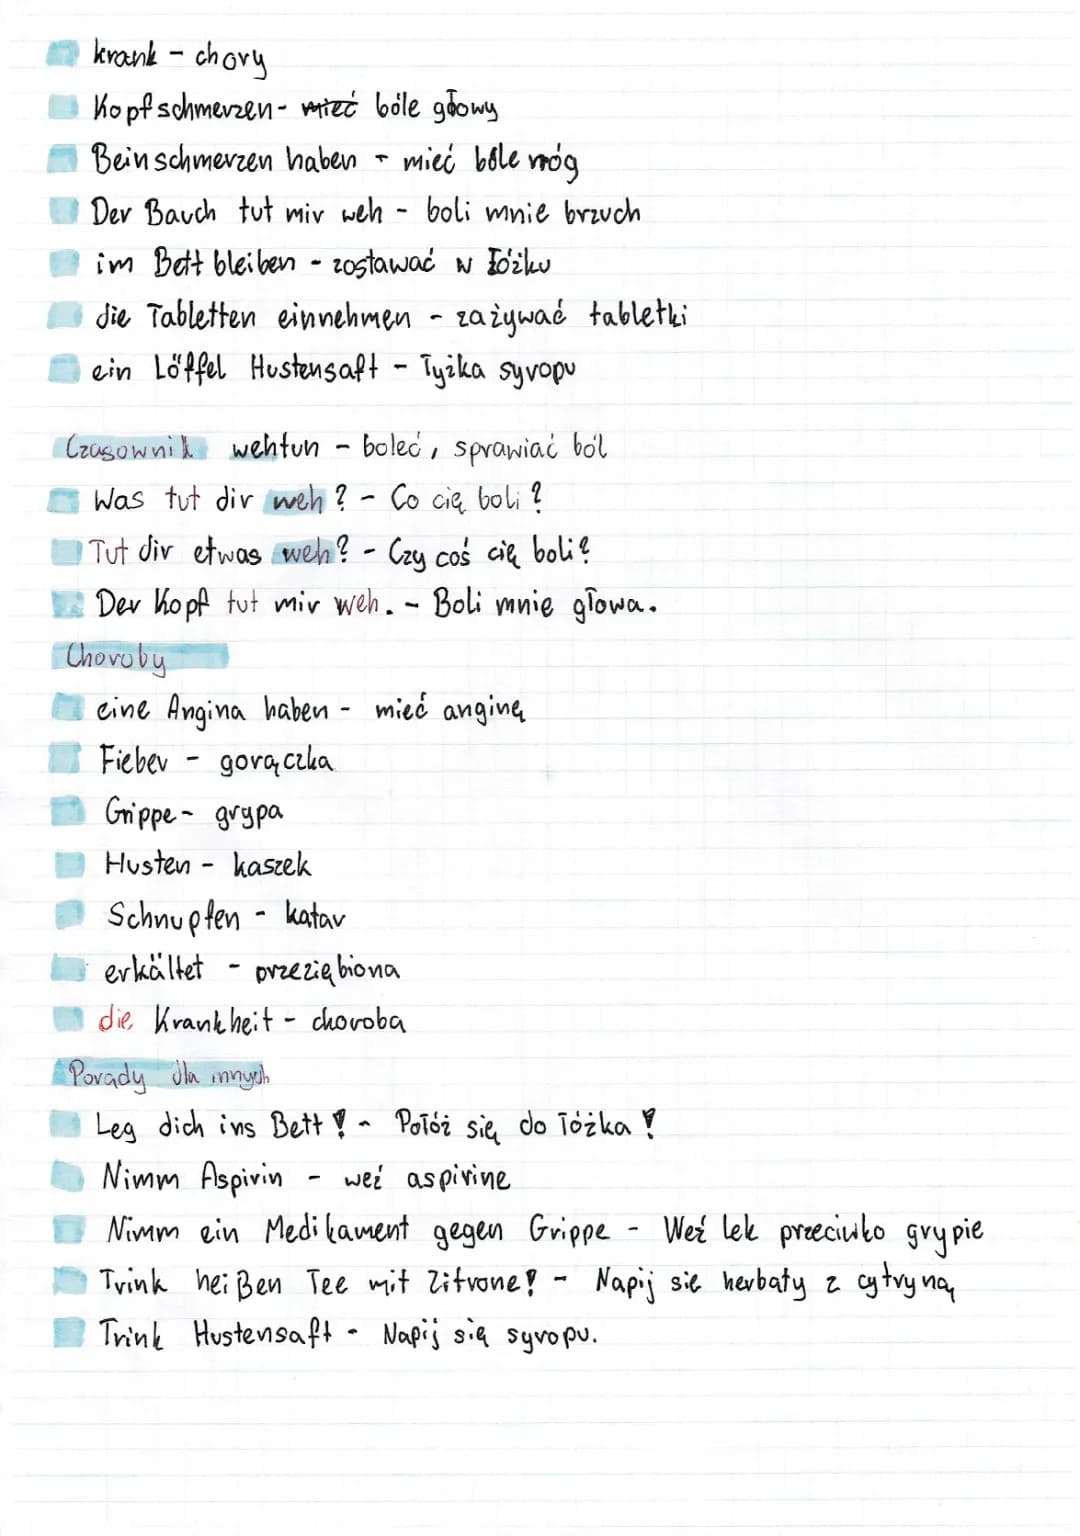 krank - chory
Kopfschmerzen - mieć bóle głowy
Beinschmerzen haben - mieć bóle nóg
Der Bauch tut mir weh - boli mnie brzuch
im Bett bleiben - zostawać w łóżku
die Tabletten einnehmen - zażywać tabletki
ein Löffel Hustensaft - łyżka syropu
Czasownik wehtun - boleć, sprawiać ból
Was tut dir weh? - Co cię boli?
Tut dir etwas weh? - Czy coś cię boli?
Der Kopf tut mir weh. - Boli mnie głowa.
Choroby
eine Angina haben - mieć anginę
Fieber - gorączka
Grippe - grypa
Husten - kaszek
Schnupfen - katar
erkältet - przeziębiona
die Krankheit - choroba
Porady dla innych
Leg dich ins Bett! - Połóż się do łóżka!
Nimm Aspirin - weź aspirine
Nimm ein Medikament gegen Grippe - Weź lek przeciwko grypie
Trink heißen Tee mit Zitrone! - Napij sie herbaty z cytryną
Trink Hustensaft - Napij się syropu.